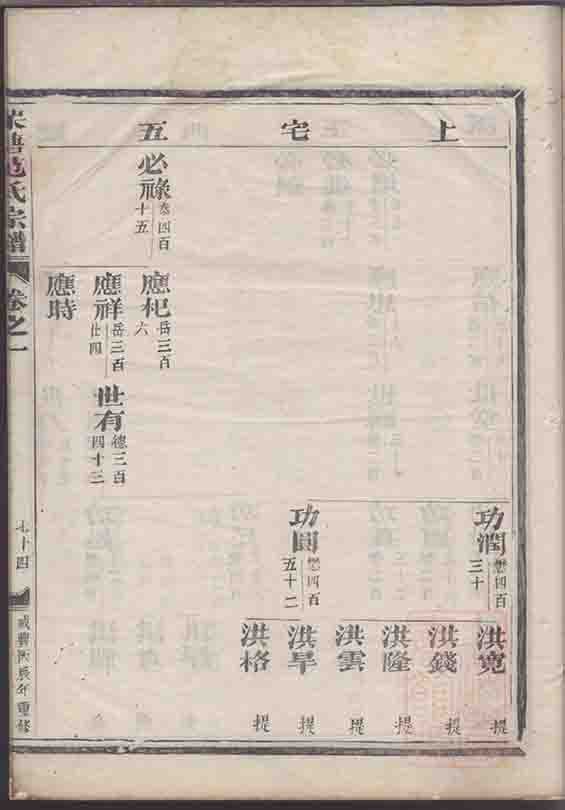 上宅五
功潤 懋四百三十
洪寬 提
洪錢 提
洪隆 提
洪雲 提
功圓 懋四百五十二
洪旱 提
洪格 提
必祿 叁四百十五
應杞 岳三百六
應祥 岳三百廿四
世有 總三百四十三
應時
氏宗譜
卷之一
七十四
咸豐丙辰年重修